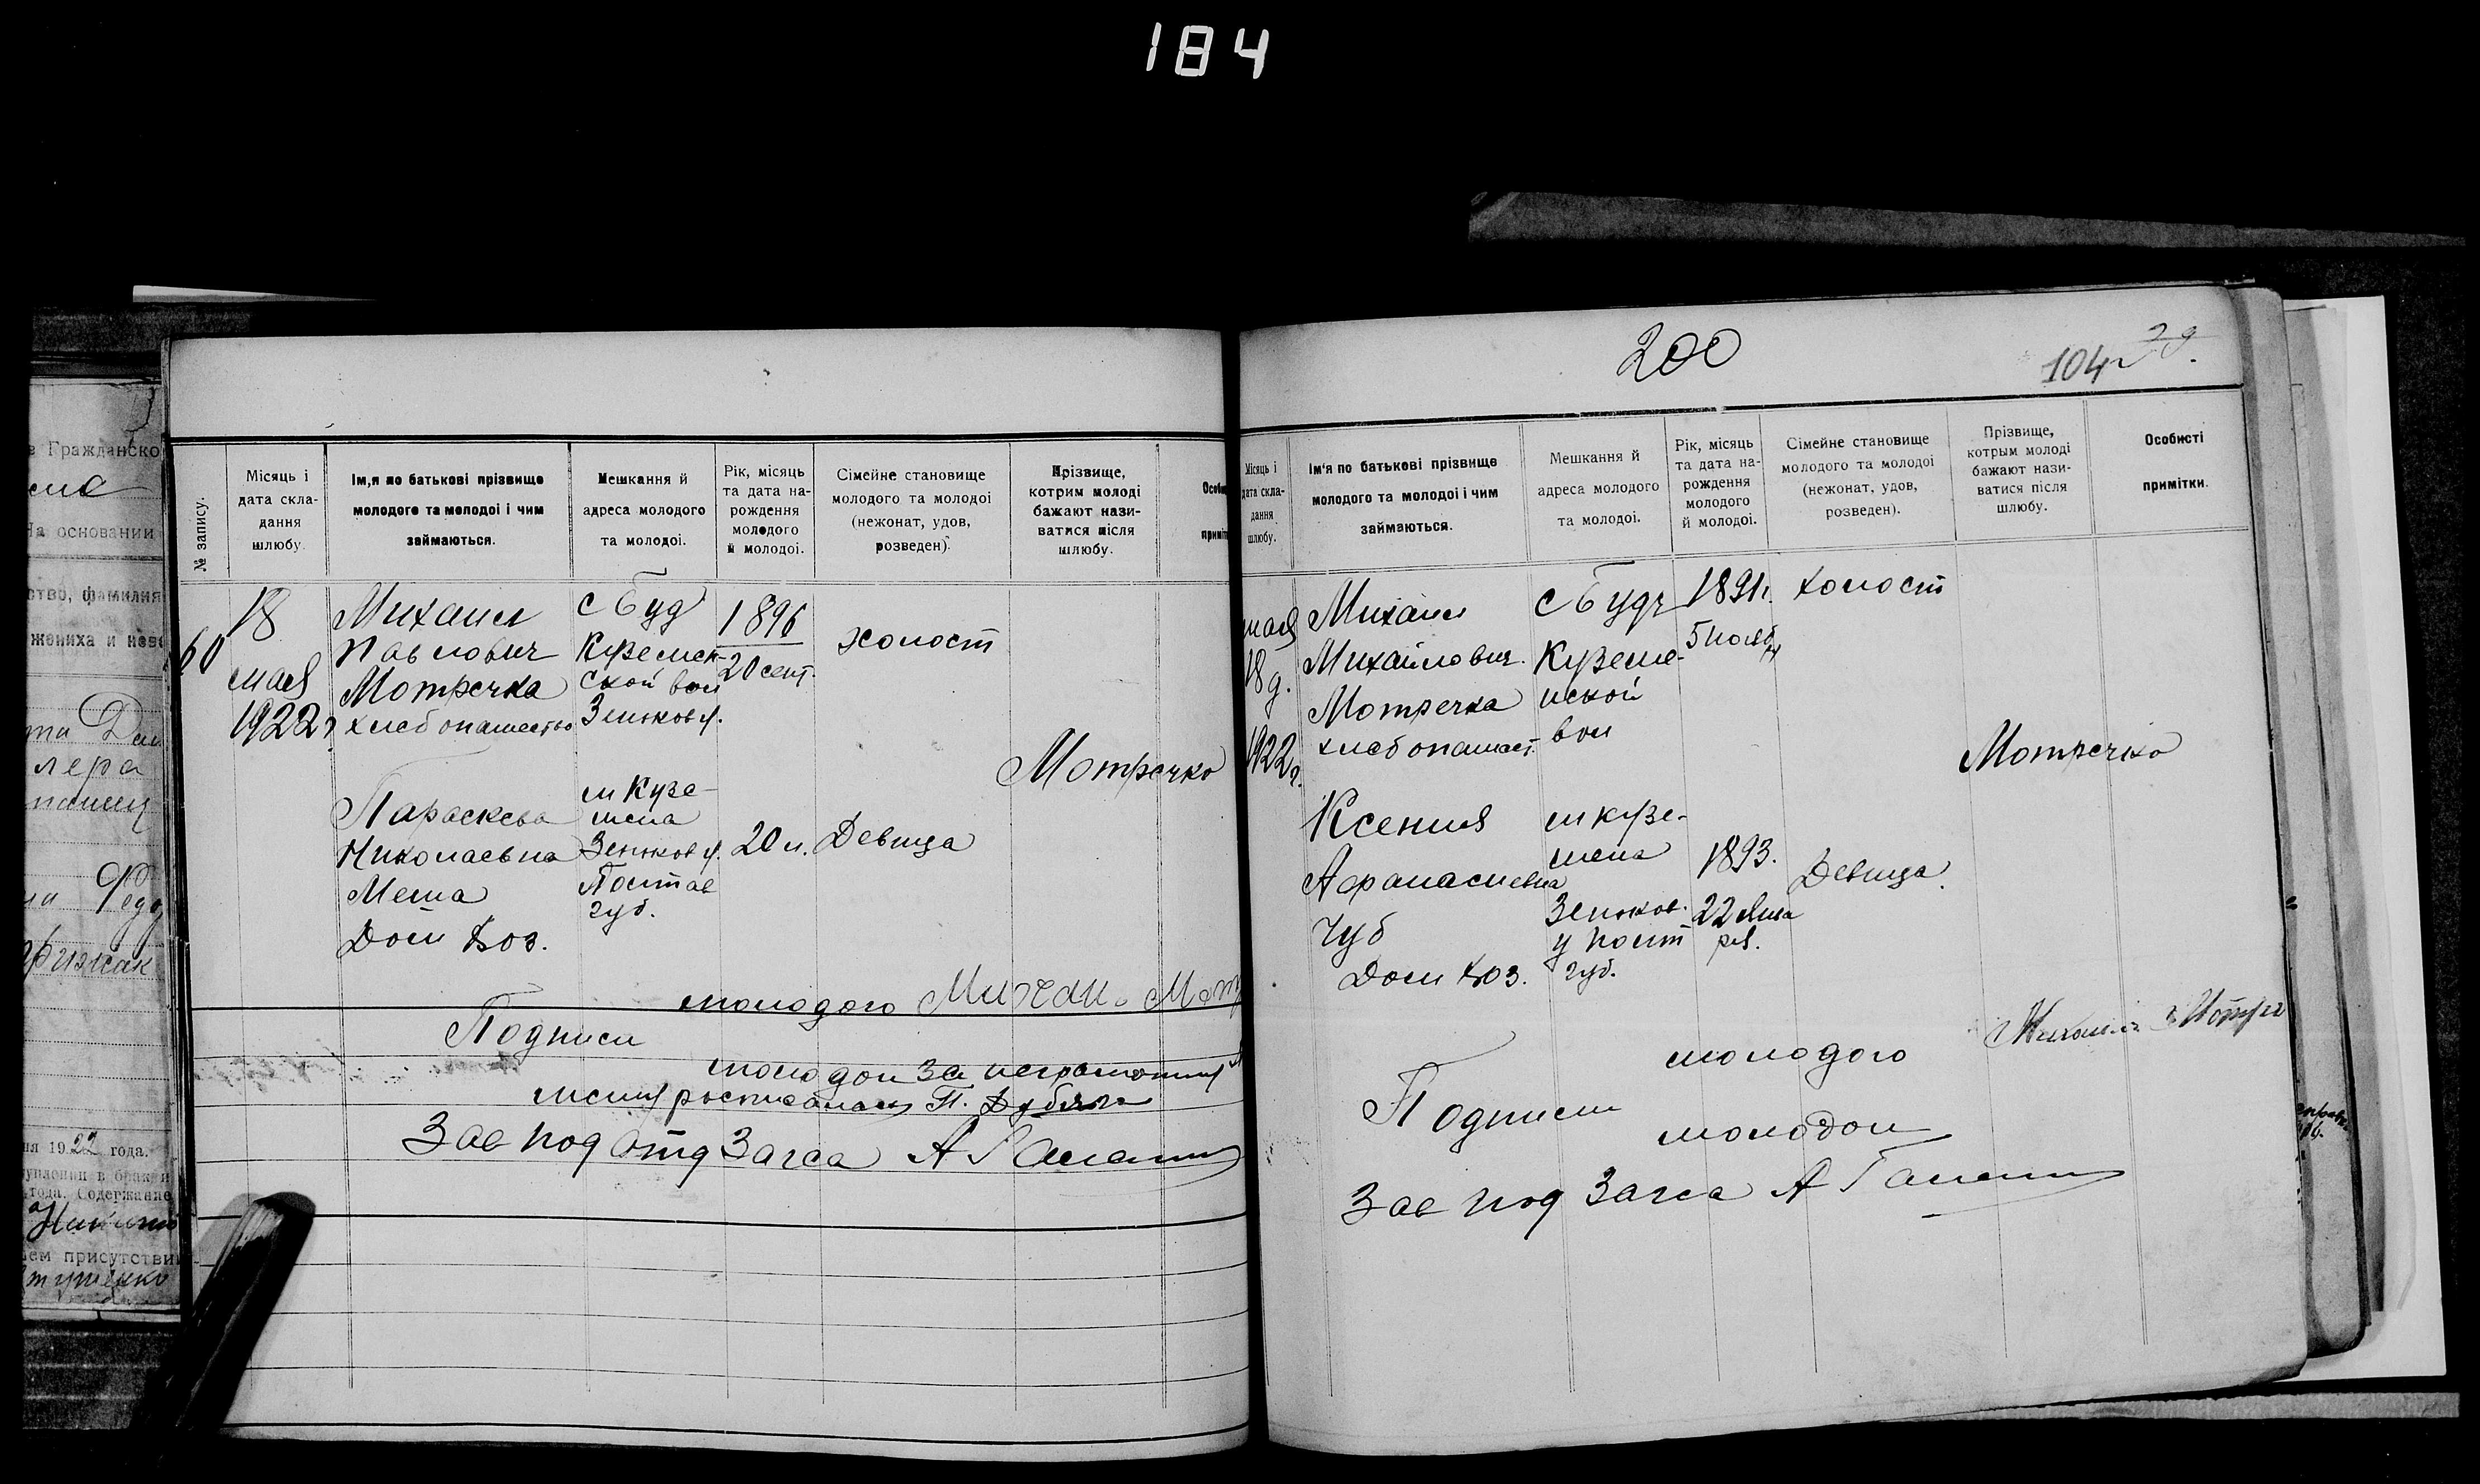 184
в Гражданско
На основании
ство, фамилия
жениха и неве
та
лера
ня 1922 года.
уплении в брак и
года. Содержание
ем присутстви
№ запису.
Місяць і дата скла-дання шлюбу.
Ім,я по батькові прізвище молодого та молодоі і чим займаються.
Мешкання й адреса молодого та молодоі.
Рік, місяць та дата на-рождення молодого й молодоі.
Сімейне становище молодого та молодоі (нежонат, удов, розведен).
Прізвище, котрим молоді бажают нази-ватися після шлюбу.
60
18
мая
1922 г
Михаил
Павлович
Мотречка
хлебопашество
с Буд
Куземен-
ской вол
Зеньков у.
1896
20 сент.
холост
Мотречко
Параскева
Николаевна
Меша
Дом хоз.
м Кузе-
мена
Зеньков у.
Полтав
губ.
20 л.
Девица
молодого
Подписи
молодой за неграмотную
П.
Зав под отд Загса А
200
104
29
Місяць і дата скла-дання шлюбу.
Ім'я по батькові прізвище молодого та молодоі і чим займаються.
Мешкання й адреса молодого та молодоі.
Рік, місяць та дата на-рождення молодого й молодоі.
Сімейне становище молодого та молодоі (нежонат, удов, розведен).
Прізвище, котрим молоді бажают нази-ватися після шлюбу.
Особисті примітки.
мая
18 д.
1922 г.
Михаил
Михайлович
Мотречка
хлебопашест.
с Буды
Куземе-
нской
вол
1891 г.
5 нояб
холост
Мотречко
Ксения
Афанасиевна
Чуб
Дом хоз.
м Кузе-
мена
Зеньков.
у Полт
губ.
1893.
22 Янва
ря.
Девица
молодого
Подписи
молодой
Зав под Загса А